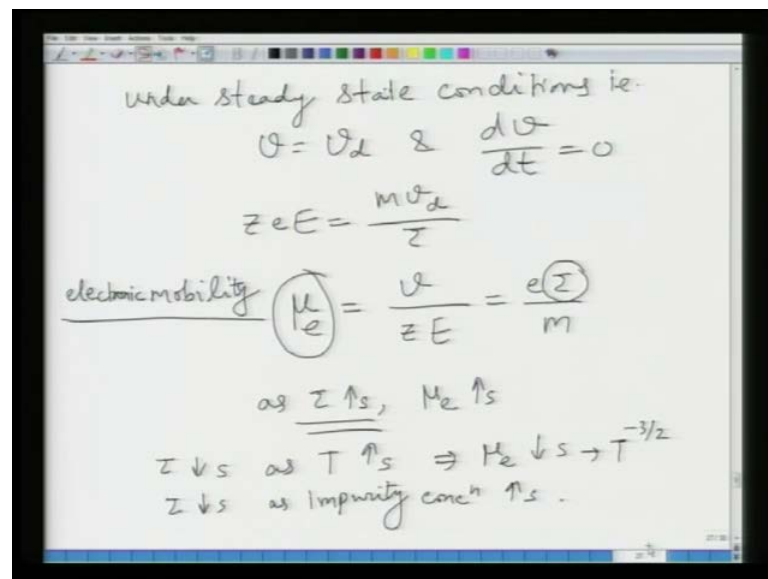 under steady state conditions ie.
ϑ = ϑd & dϑ/dt = 0
zeE = mϑd/τ
electronic mobility μe = ϑ/zE = eτ/m
as τ ↑s, μe ↑s
τ ↓s as T ↑s ⇒ μe ↓s → T^-3/2
τ ↓s as impurity concn ↑s.